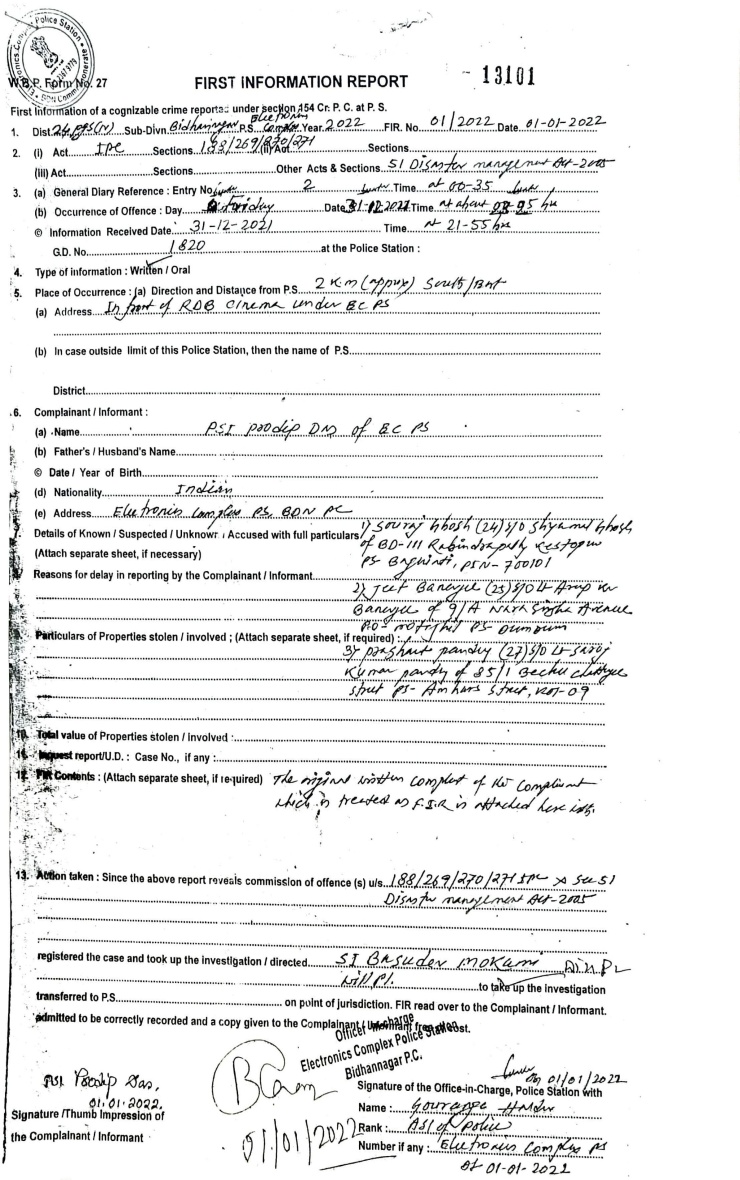 Electronics Complex Police Station
W.B.P. Form No. 27
FIRST INFORMATION REPORT
- 13101
First Information of a cognizable crime reported under section 154 Cr. P. C. at P. S.
1. Dist. 24 pgs (N) Sub-Divn. Bidhannagar P.S. Electronics Complex Year 2022 FIR. No. 01/2022 Date 01-01-2022
2. (i) Act IPC Sections 188/269/270/271 (ii) Act Sections
(iii) Act Sections Other Acts & Sections 51 Disaster management Act-2005
3. (a) General Diary Reference : Entry No. 2 Time at 00-35
(b) Occurrence of Offence : Day Friday Date 31-12-2021 Time at about hrs
© Information Received Date 31-12-2021 Time at 21-55 hrs
G.D. No. 1820 at the Police Station :
4. Type of information : Written / Oral
5. Place of Occurrence : (a) Direction and Distance from P.S. 2 K.m (approx) South/
(a) Address In front of RDB Cinema under EC PS
(b) In case outside limit of this Police Station, then the name of P.S.
District
6. Complainant / Informant :
(a) Name PSI Prodip Das of EC PS
(b) Father's / Husband's Name
© Date / Year of Birth
(d) Nationality Indian
(e) Address Electronics Complex PS, BDN PC
7. Details of Known / Suspected / Unknown Accused with full particulars 1) Souraj Ghosh (24) S/O Shyamal Ghosh
(Attach separate sheet, if necessary) of BD-111 Rabindrapally Kestopur
PS Baguiati, PIN-700101
Reasons for delay in reporting by the Complainant / Informant
2) Jeet Banerjee (25) S/O Lt
Banerjee of 9/A Nara Singha Avenue
PO- Motijhil PS Dumdum
9. Particulars of Properties stolen / involved ; (Attach separate sheet, if required) :
3) pandey (27) S/O Lt Saroj
Kumar pandey of 85/1 Bechu Chatterjee
Street PS- Amhars Street, Kol-09
10. Total value of Properties stolen / Involved :
11. Inquest report/U.D. : Case No., if any :
12. FIR Contents : (Attach separate sheet, if required) The original written complaint of the Complainant
which is treated as F.I.R is attached here with.
13. Action taken : Since the above report reveals commission of offence (s) u/s. 188/269/270/271 IPC Sec 51
Disaster management Act-2005
registered the case and took up the investigation / directed SI Basudev Mokami
will pl. to take up the investigation
transferred to P.S. on point of jurisdiction. FIR read over to the Complainant / Informant.
admitted to be correctly recorded and a copy given to the Complainant / Informant free of cost.
Officer in-charge
Electronics Complex Police Station
Bidhannagar P.C.
01/01/2022
PSI Prodip Das,
01.01.2022.
Signature /Thumb Impression of
the Complainant / Informant
01/01/2022
Signature of the Office-in-Charge, Police Station with
Name : Gouranga Halder
Rank : ASI of police
Number if any : Electronics Complex PS
dt 01-01-2022